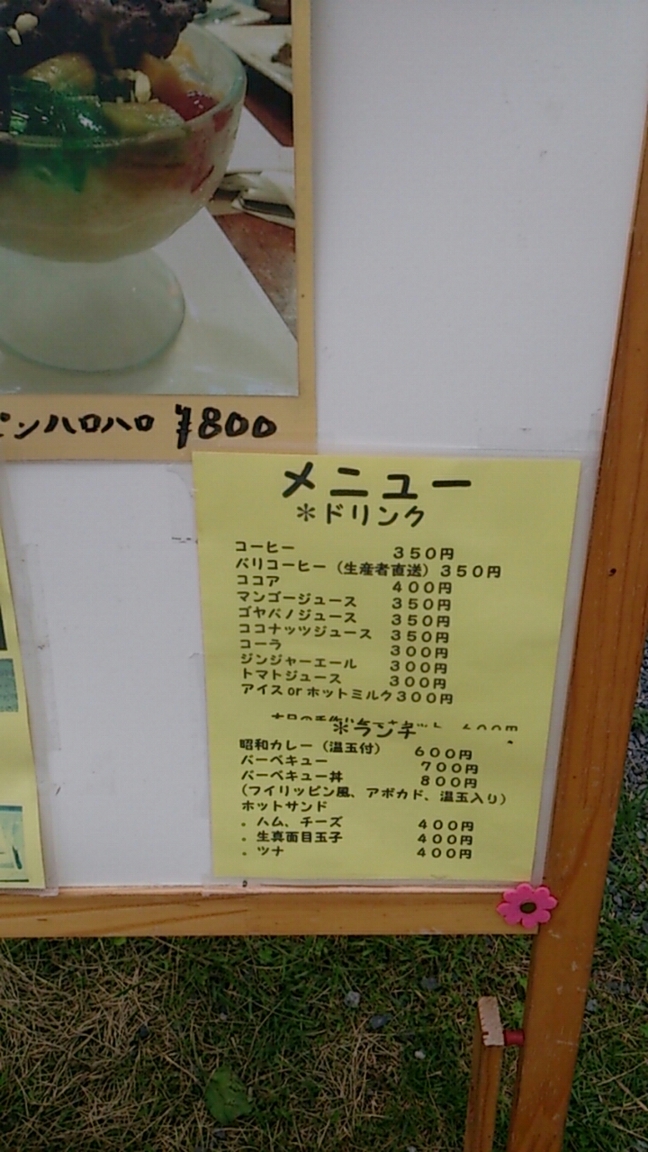 ピンハロハロ ¥800
メニュー
*ドリンク
コーヒー 350円
バリコーヒー(生産者直送)350円
ココア 400円
マンゴージュース 350円
ゴヤバノジュース 350円
ココナッツジュース 350円
コーラ 300円
ジンジャーエール 300円
トマトジュース 300円
アイスorホットミルク300円
*ランチ
昭和カレー(温玉付) 600円
バーベキュー 700円
バーベキュー丼 800円
(フイリッピン風、アボカド、温玉入り)
ホットサンド
．ハム、チーズ 400円
．生真面目玉子 400円
．ツナ 400円